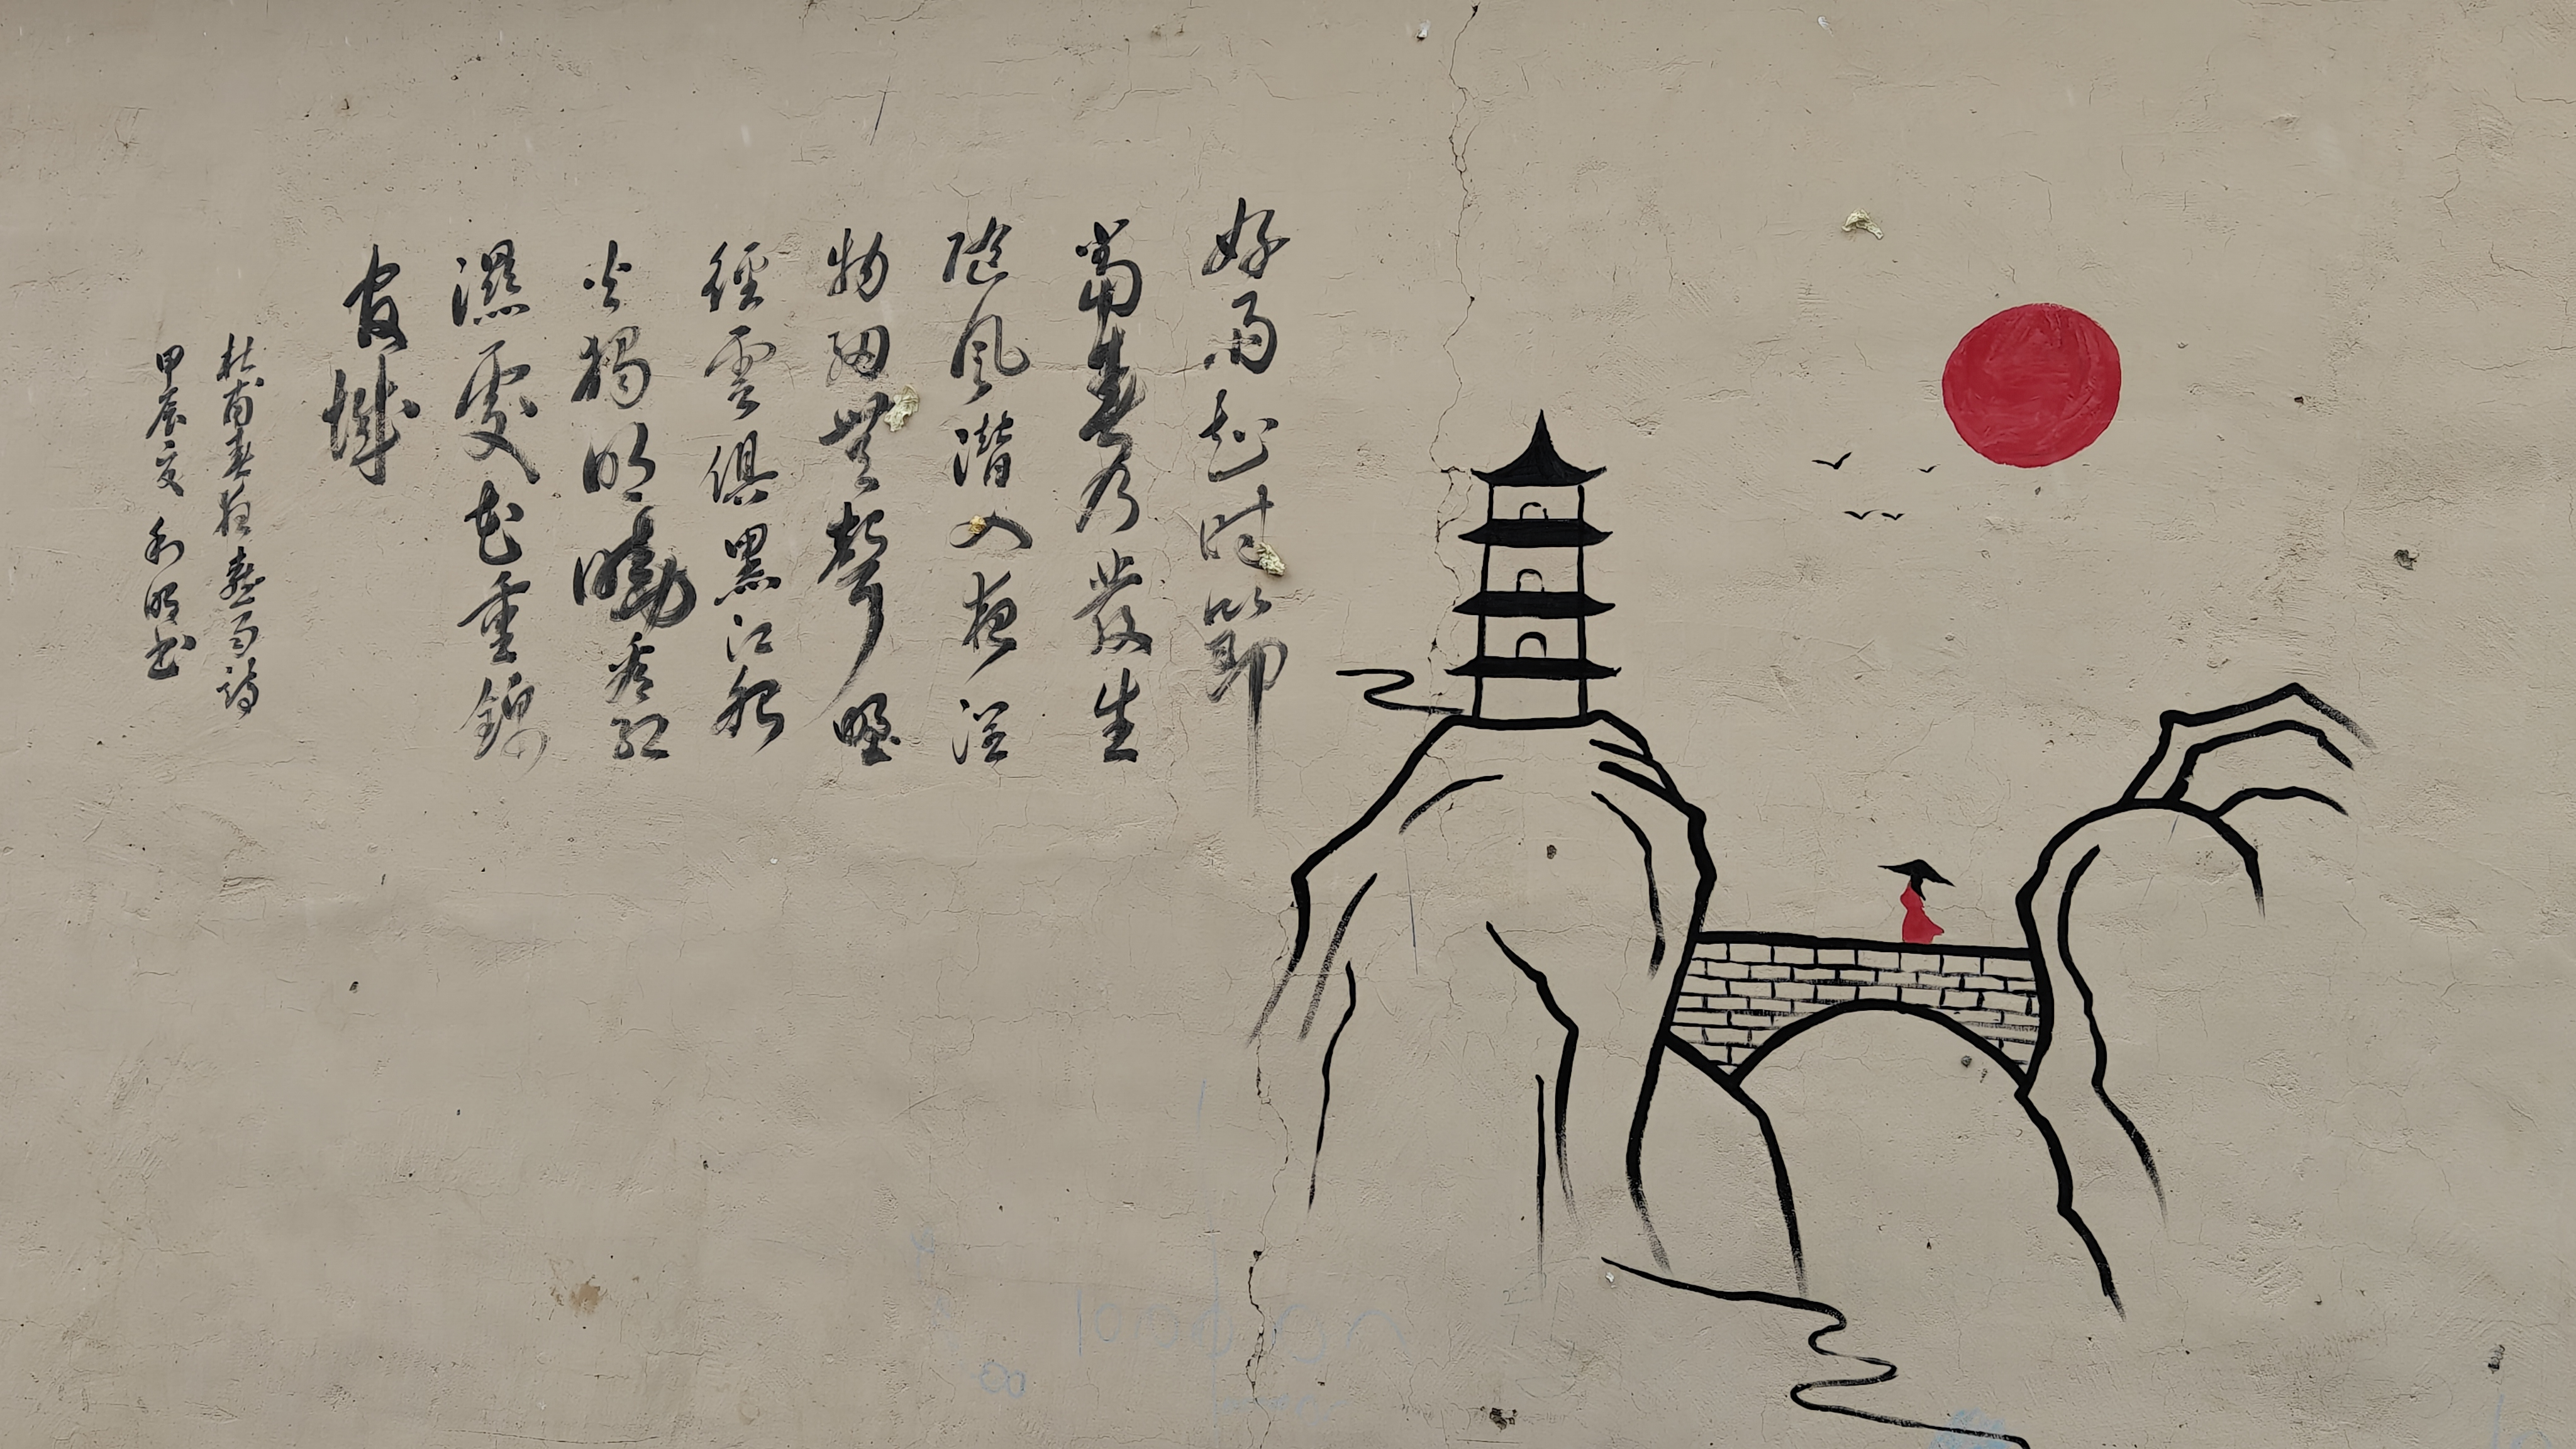 好雨知時節
當春乃發生
隨風潛入夜潤
物細無聲野
徑雲俱黑江船
火獨明曉看紅
濕處花重錦
官城
杜甫春夜喜雨詩
甲辰夏 利明书